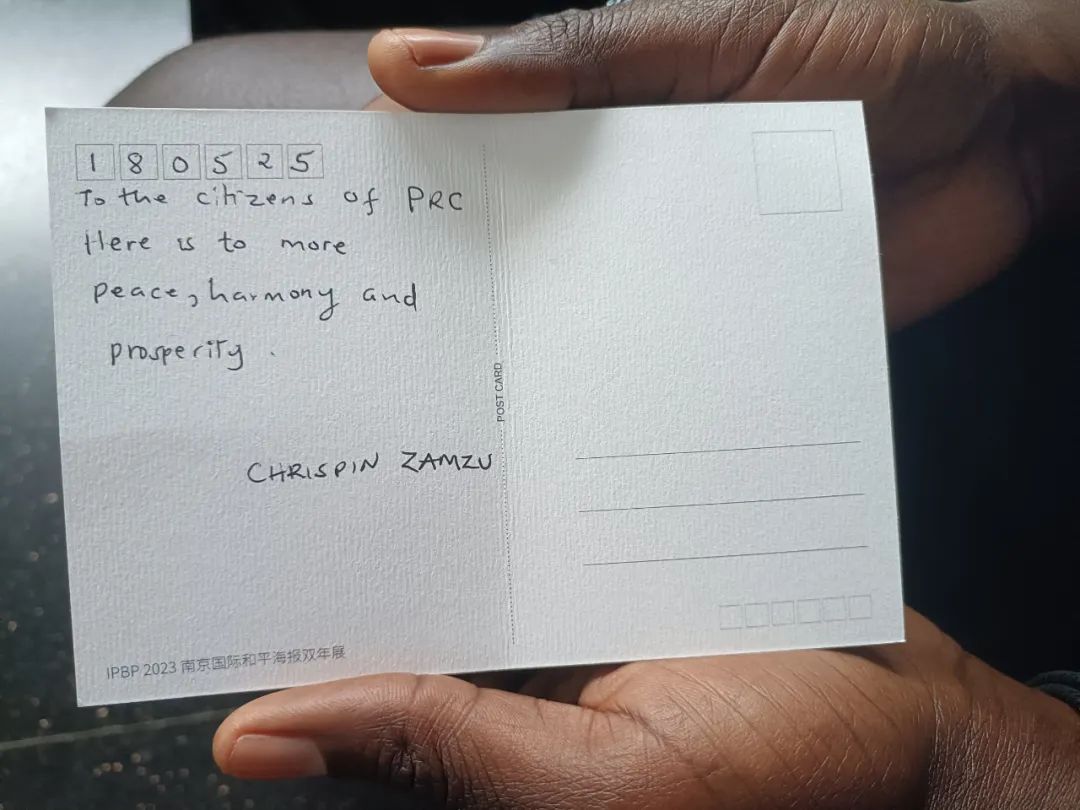 180525
To the citizens of PRC
Here is to more
peace, harmony and
prosperity.
CHRISPIN ZAMZU
POST CARD
IPBP 2023 南京国际和平海报双年展